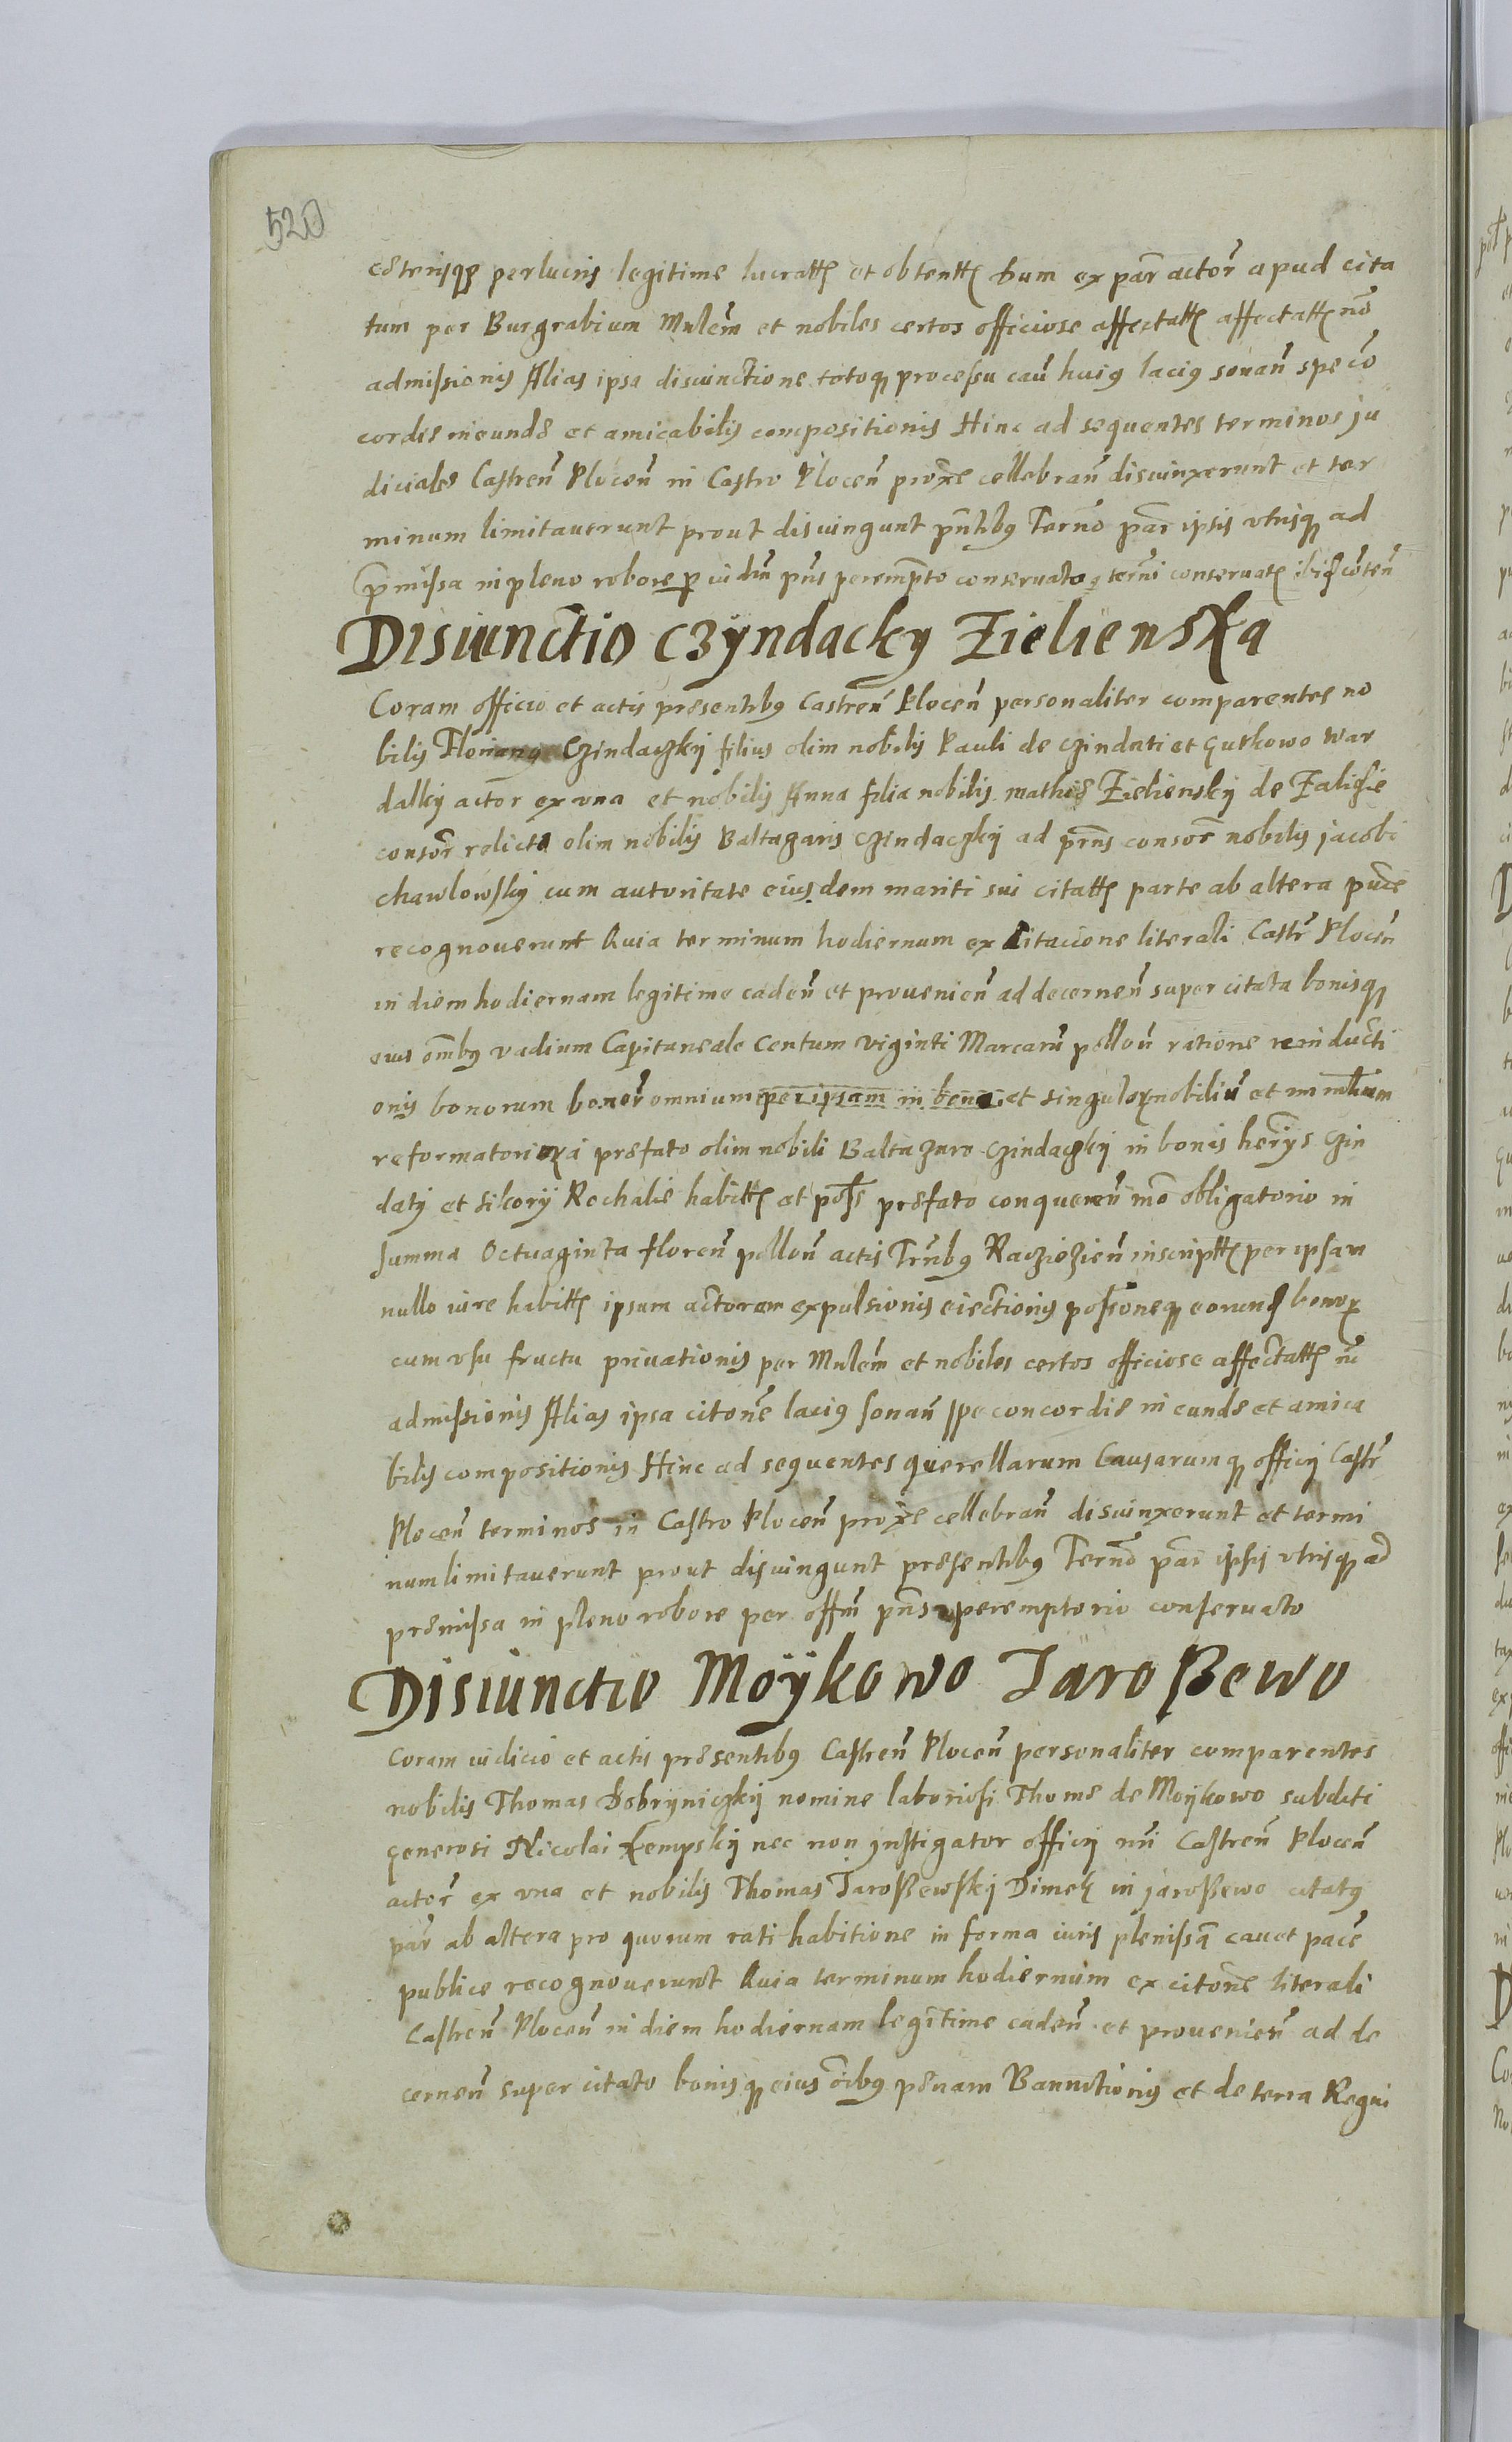 520
cęterisq perlucris legitime lucratt et obtentt dum ex par actor apud cita
tum per Burgrabium Mnlem et nobiles certos officiose affectatt affectatt no
admissionis Alias ipsa disiunctione totoq processu cau huig lacig sonan spe co
cordię ineundę et amicabilis compositionis Hinc ad sequentes terminos ju
diciales Castren Plocen in Castro Plocen proxe cellebran disiunxerunt et ter
minum limitauerunt prout disiungunt pntibg Terno par ipsis vtrisq ad
pmissa in pleno robore p iudm pns perempto conseruato
Disiunctio Czÿndacky Zielienska
Coram officio et actis pręsentibg Castren Plocen personaliter comparentes no
bilis Floriang Czindaczkÿ filius olim nobilis Pauli de Czindati et Gutkowo War
dalkÿ actor ex vna et nobilis Anna filia nobilis mathię Zielienskÿ de Zaliesie
consor relicta olim nobilis Baltazaris Czindaczkÿ ad prns consor nobilis jacobi
chawlowskÿ cum autoritate eiusdem mariti sui citatt parte ab altera puce
recognouerunt Quia terminum hodiernum ex Citacione literali Castr Plocen
in diem hodiernam legitime caden et prouenien ad decernen super citata bonisq
eius ombg vadium Capitaneale Centum viginti Marcaru pollon ratione reinducti
onis bonorum bonor omnium per ipsam in bona et singulor nobiliu et inmobilium
reformatori pręfato olim nobili Baltazaro Czindaczkÿ in bonis herÿs Czin
datÿ et sikorÿ Rochalie habitt et posse pręfato conqueren mo obligatorio in
summa Octuaginta floren pollon actis Trnbg Racziezien inscriptt per ipsam
nullo iure habitt ipsum actorem expulsionis eiectionis possoneq eorund bonor
cum vsu fructu priuationis per Mnlem et nobiles certos officiose affectatt no
admissionis Alias ipsa citone lacig sonan spe concordię in eundę et amica
bilis compositionis Hinc ad sequentes querellarum Causarumq officÿ Castr
Plocen terminos in Castro Plocen proxe cellebran disiunxerunt et termi
num limitauerunt prout disiungunt pręsentibg Terno par ipsis vtrisq ad
pręmissa in pleno robore per offm pns peremptorio conseruato
Disiunctio Moÿkowo Jaroßewo
Coram iudicio et actis pręsentibg Castren Plocen personaliter comparentes
nobilis Thomas Dobrÿniczkÿ nomine laboriosi Thomę de Moÿkowo subditi
generosi Nicolai Kempskÿ nec non jnstigator officÿ nri Castren Plocen
actor ex vna et nobilis Thomas Jaroßewskÿ Dimek in jaroßewo citatg
par ab altera pro quorum rati habitione in forma iuris plenissa cauet pace
publice recognouerunt Quia terminum hodiernum ex citone literali
Castren Plocen in diem hodiernam legitime caden et prouenien ad de
cernen super citato bonisq eius oibg pęnam Bannitionis et de terra Regni